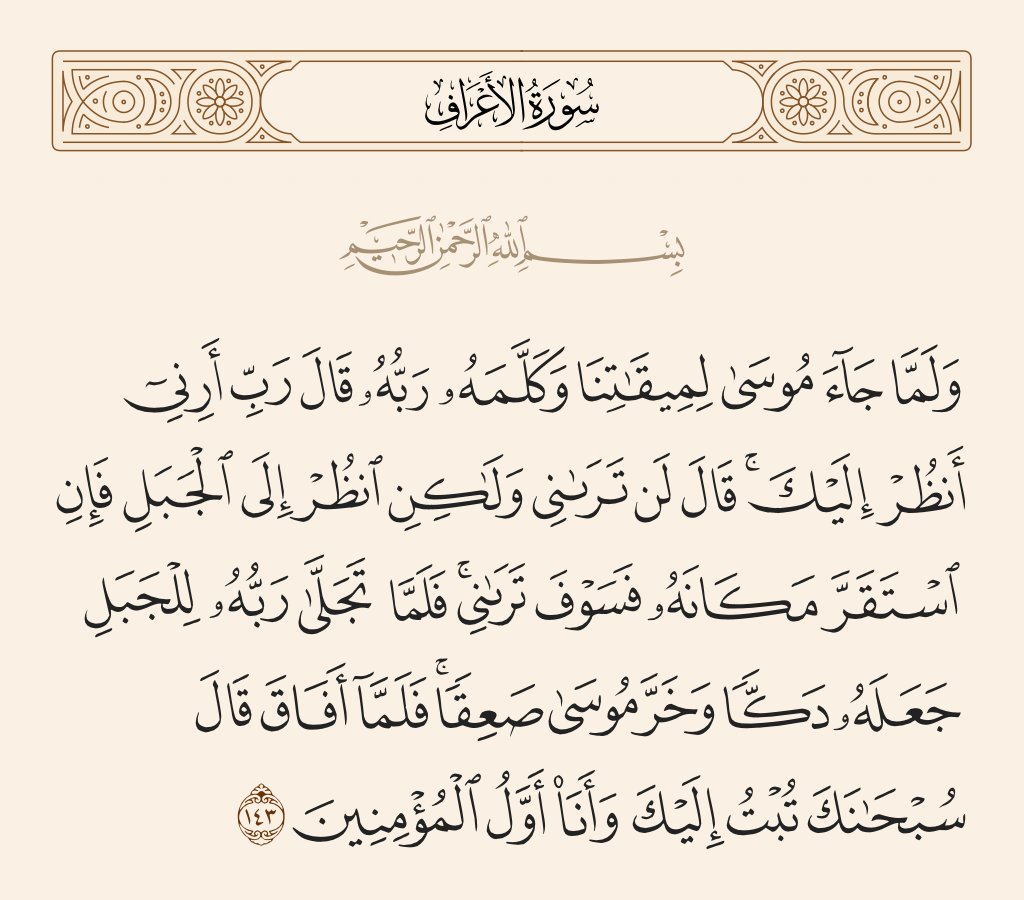 سُورَةُ الأَعْرَافِ
بِسْمِ ٱللَّهِ ٱلرَّحْمَٰنِ ٱلرَّحِيمِ
وَلَمَّا جَآءَ مُوسَىٰ لِمِيقَٰتِنَا وَكَلَّمَهُۥ رَبُّهُۥ قَالَ رَبِّ أَرِنِىٓ
أَنظُرْ إِلَيْكَ ۚ قَالَ لَن تَرَىٰنِى وَلَٰكِنِ ٱنظُرْ إِلَى ٱلْجَبَلِ فَإِنِ
ٱسْتَقَرَّ مَكَانَهُۥ فَسَوْفَ تَرَىٰنِى ۚ فَلَمَّا تَجَلَّىٰ رَبُّهُۥ لِلْجَبَلِ
جَعَلَهُۥ دَكًّا وَخَرَّ مُوسَىٰ صَعِقًا ۚ فَلَمَّآ أَفَاقَ قَالَ
سُبْحَٰنَكَ تُبْتُ إِلَيْكَ وَأَنَا۠ أَوَّلُ ٱلْمُؤْمِنِينَ ١٤٣